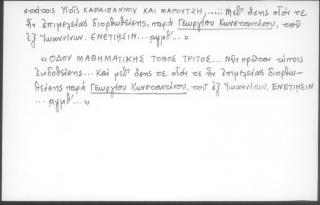 στάτοις Υἱοῖς ΚΑΡΑΪΩΑΝΝΟΥ ΚΑΙ ΜΑΡΟΥΤΖΗ, ..... Μεθ' ὅσης οἷόν τε
ἦν ἐπιμελείας διορθωθεῖσης, παρὰ Γεωργίου Κωνσταντίνου, τοῦ
ἐξ Ἰωαννίνων. ΕΝΕΤΙΗΣΙΝ ... αψμθ' ... »
« ΟΔΟΥ ΜΑΘΗΜΑΤΙΚΗΣ ΤΟΜΟΣ ΤΡΙΤΟΣ ... Νῦν πρῶτον τύποις
ἐκδοθείσης ... Καὶ μεθ' ὅσης τε οἷόν τε ἦν ἐπιμελείας διορθω-
θείσης παρὰ Γεωργίου Κωνσταντίνου, τοῦ ἐξ Ἰωαννίνων. ΕΝΕΤΙΗΣΙΝ
... αψμθ' ... »